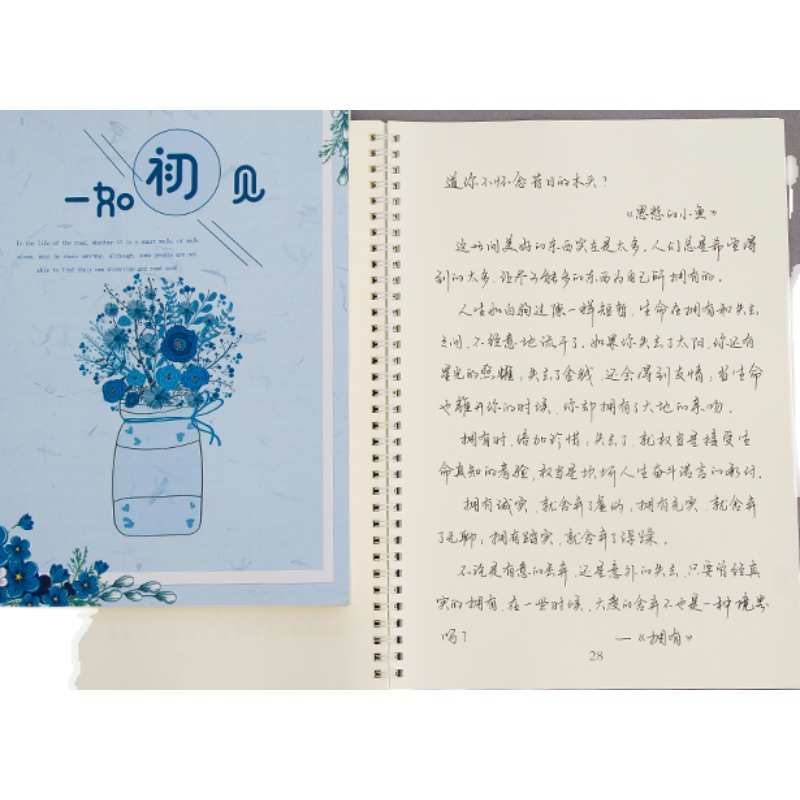 一如初见
In the life of the road, whether it is a smart walk, or walk
alone, must be music earning, although, some people are not
able to find their own direction and road until
道你不怀念昔日的木头？
《思想的小鱼》
这世间美好的东西实在是太多，人们总是希望得
到的太多，让尽可能多的东西为自己所拥有的。
人生如白驹过隙一样短暂，生命在拥有和失去
之间，不经意地流干了。如果你失去了太阳，你还有
星光的照耀；失去了金钱，还会得到友情；当生命
也离开你的时候，你却拥有了大地的亲吻。
拥有时，倍加珍惜；失去了，就权当是接受生
命真知的考验，权当是坎坷人生奋斗诺言的承付。
拥有诚实，就舍弃了虚伪；拥有充实，就舍弃
了无聊；拥有踏实，就舍弃了浮躁。
不论是有意的丢弃，还是意外的失去，只要曾经真
实的拥有，在一些时候，大度的舍弃不也是一种境界
吗？ —《拥有》
28